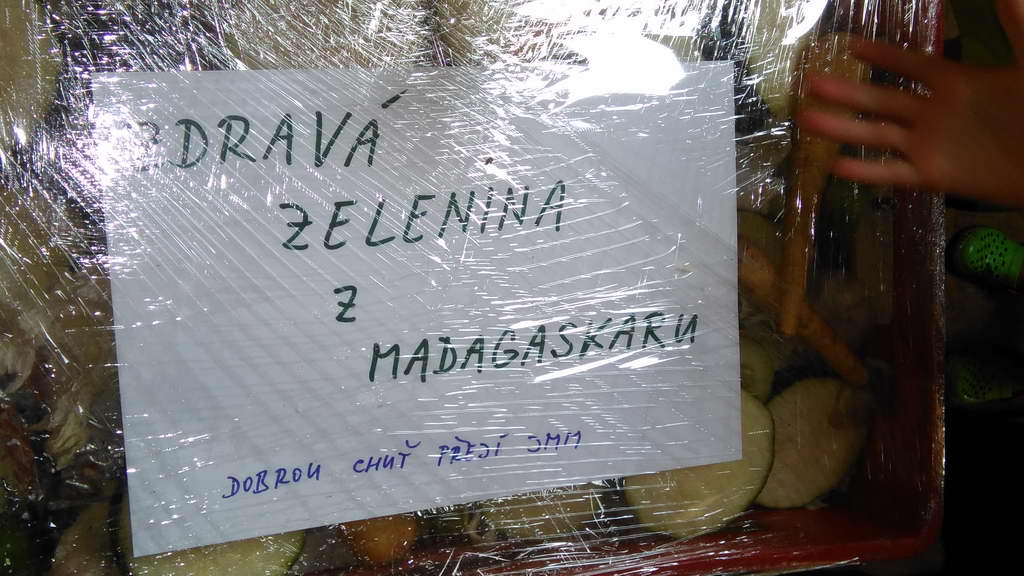 ZDRAVÁ
ZELENINA
Z
MADAGASKARU
DOBROU CHUŤ PŘEJÍ JMM